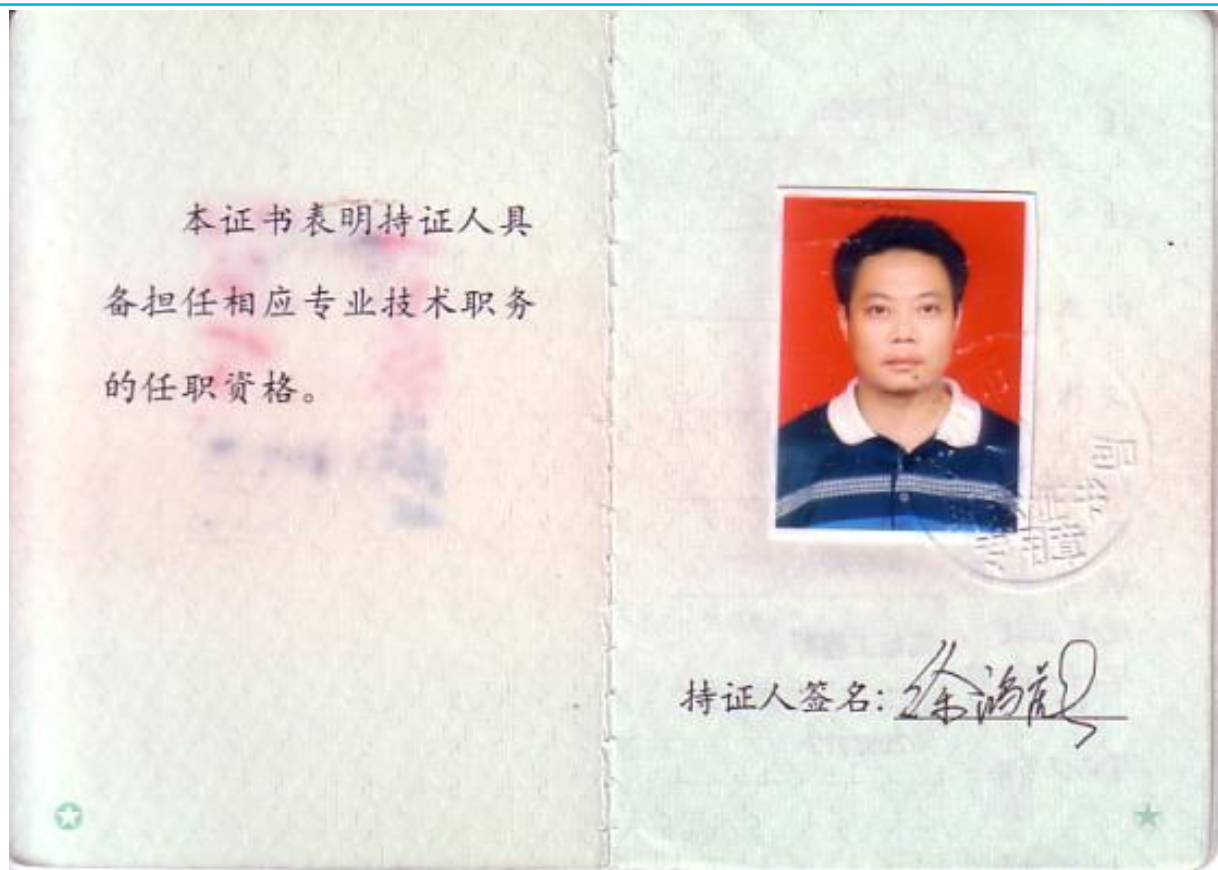 本证书表明持证人具
备担任相应专业技术职务
的任职资格。
专用章
持证人签名:徐